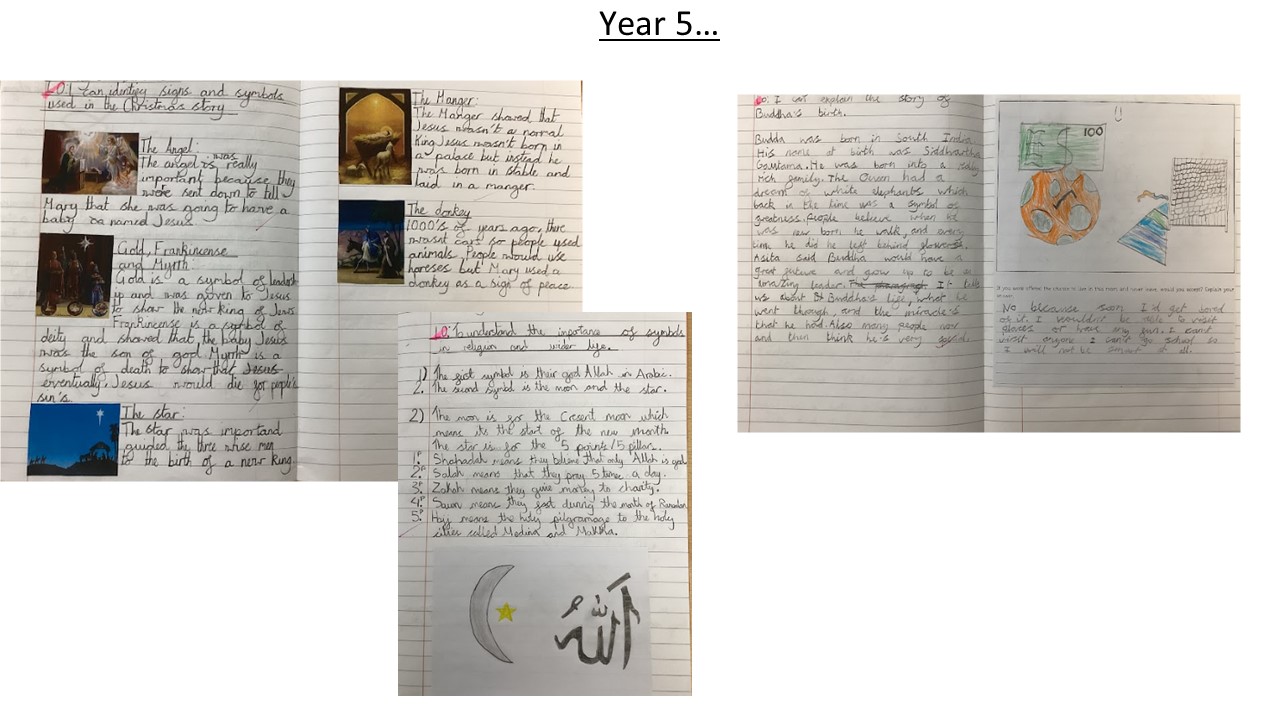 Year 5...
L.O. I can identiey signs and symbols
used in the Christmas story
The Angel:
The angel is was really
important because they
were sent down to tell
Mary that she was going to have a
baby named Jesus.
Gold, Frankincense
and Myrrh:
Gold is a symbol of leadersh
ip and was given to Jesus
to show the new king of Jews
Frankincense is a symbol of
deity and showed that, the baby Jesus
was the son of god Myrrh is a
symbol of death to show that Jesus
eventually, Jesus would die for people's
sin's
The star:
The star was importand
guided the three wise men
to the birth of a new king.
The Manger:
The Manger showed that
Jesus wasn't a normal
King Jesus wasn't born in
a palace but instead he
was born in stable and
laid in a manger.
The donkey
1000's of years ago, there
wasnt cars so people used
animals. People would use
horeses but Mary used a
donkey as a sign of peace.
Lo: To understand the importane of symbols
in religion and wider life.
1) The first symbol is their god Allah in Arabic.
2. The second symbol is the moon and the star.
2) The moon is for the Cresent moon which
means its the start of the new month.
The star is for the 5 points/5 pillar.
1. Shahadah means they believe that only Allah is god
2. Salah means that they pray 5 times a day.
3. Zakah means they give money to charity.
4. Sawn means they fast during the month of Ramadan
5. Hajj means the holy pilgramage to the holy
cities called Medina and Makkha.
الله
Lo: I can explain the story of
Buddha's birth.
Budda was born in South India
His name at birth was Siddhartha
Gautama. He was born into a
rich family. The Queen had a
dream of white elephants which
back in the time was a symbol of
greatness. People believe when he
was new born he walk, and every
time he did he left behind flowers.
Asita said Buddha would have a
great future and grow up to be a
amazing leader. The paragraph It tells
us about Buddha's life, what he
went through, and the miracle's
that he had. Also many people now
and then think he's very good.
100
If you were offered the chance to live in this room and never leave, would you accept? Explain your
answer.
No because soon I'd get bored
of it. I wouldn't be able to visit
places or have my fun. I can't
visit anyone I can't go school so
I will not be smart at all.